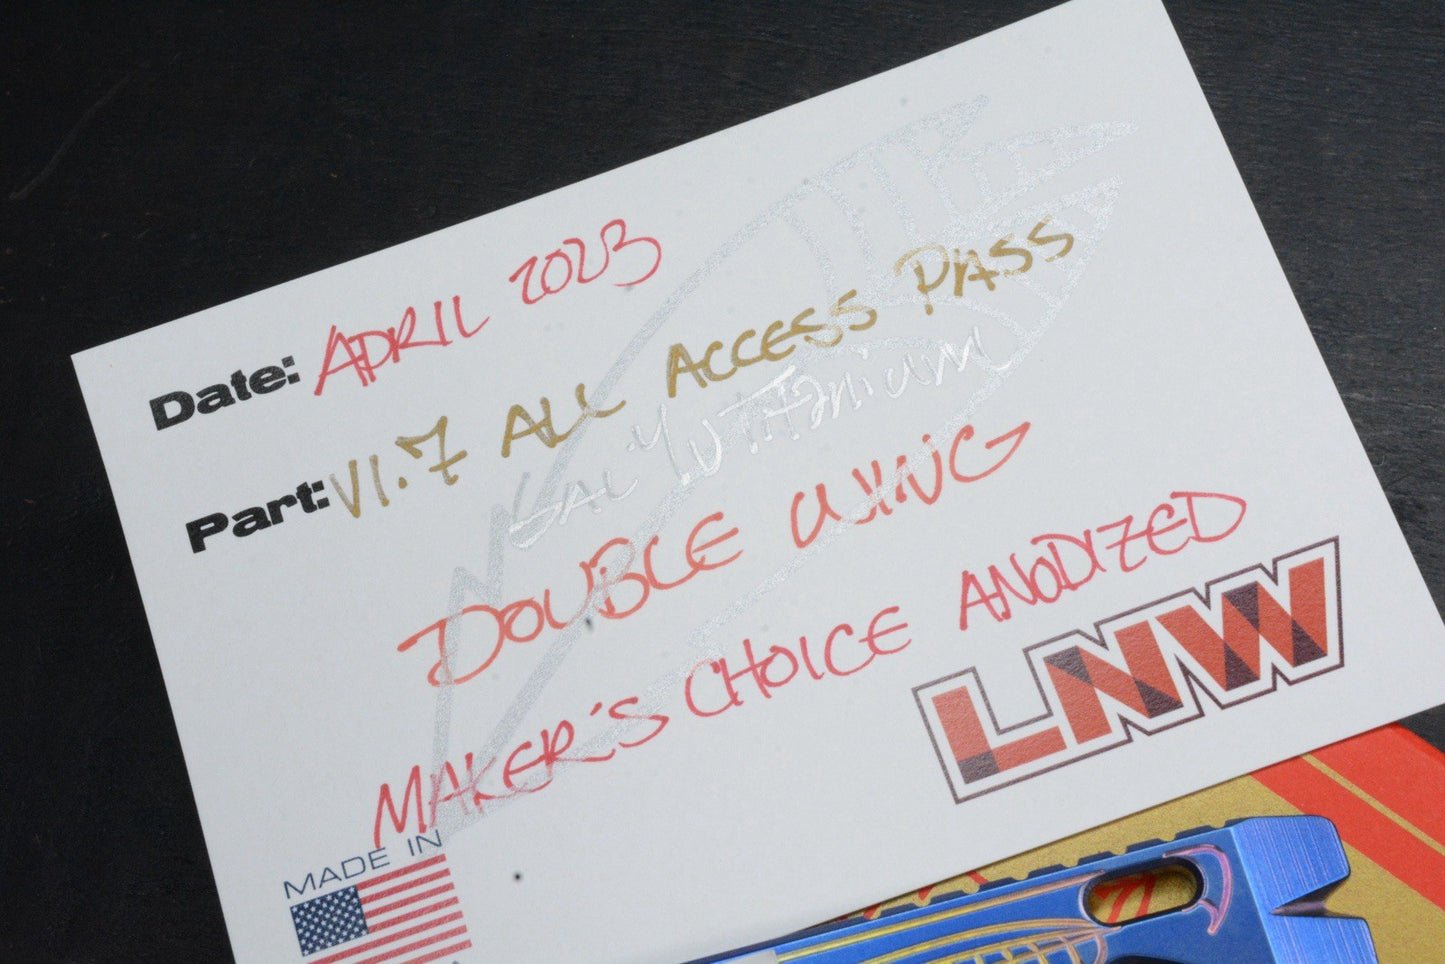 Date: APRIL 2023
Part: V1.7 ALL ACCESS PASS
TITANIUM
DOUBLE WING
MAKER'S CHOICE ANODIZED
LNW
MADE IN